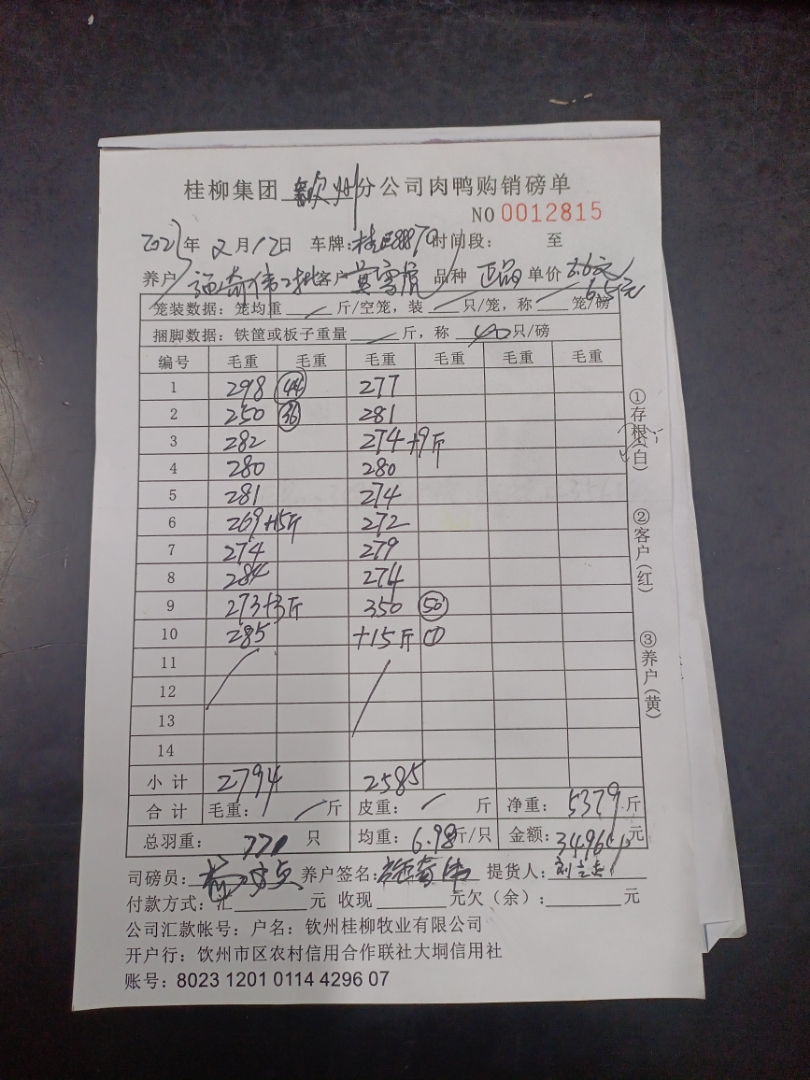 桂柳集团 钦州 分公司肉鸭购销磅单
NO 0012815
2023年 2月12日 车牌: 时间段: 至
养户 施奇伟 客户 黄雪虎 品种 正品 单价 6.6元
6.5元
笼装数据：笼均重 / 斤/空笼，装 / 只/笼，称 / 笼/磅
捆脚数据：铁筐或板子重量 / 斤，称 40 只/磅
编号 毛重 毛重 毛重 毛重 毛重 毛重
1 298 44 277
2 250 36 281
3 282 274+9斤
4 280 280
5 281 274
6 269+15斤 272
7 274 279
8 284 274
9 273+3斤 350 50
10 285 +15斤 ①
11
12
13
14
小计 2794 2585
合计 毛重: / 斤 皮重: / 斤 净重: 5379 斤
总羽重: 771 只 均重: 6.98 斤/只 金额: 34965 元
司磅员: 养户签名: 施奇伟 提货人:
付款方式: 汇 元 收现 元欠（余）: 元
公司汇款帐号：户名：钦州桂柳牧业有限公司
开户行：钦州市区农村信用合作联社大垌信用社
账号：8023 1201 0114 4296 07
①存根(白)
②客户(红)
③养户(黄)